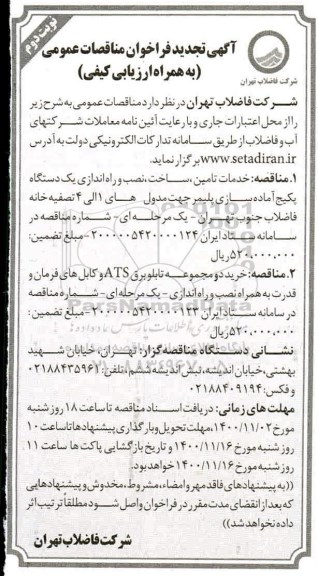 نوبت دوم
آگهی تجدید فراخوان مناقصات عمومی
(به همراه ارزیابی کیفی)
شرکت فاضلاب تهران
شرکت فاضلاب تهران در نظر دارد مناقصات عمومی به شرح زیر
را از محل اعتبارات جاری و با رعایت آئین نامه معاملات شرکتهای
آب و فاضلاب از طریق سامانه تدارکات الکترونیکی دولت به آدرس
www.setadiran.ir برگزار نماید.
۱. مناقصه: خدمات تامین، ساخت، نصب و راه اندازی یک دستگاه
پکیج آماده سازی پلیمر جهت مدول های ۱ الی ۴ تصفیه خانه
فاضلاب جنوب تهران - یک مرحله ای - شماره مناقصه در
سامانه ستاد ایران ۲۰۰۰۰۰۵۴۲۰۰۰۰۱۲۴ - مبلغ تضمین:
۵۲۰,۰۰۰,۰۰۰ ریال
۲. مناقصه: خرید دو مجموعه تابلو برق ATS و کابل های فرمان و
قدرت به همراه نصب و راه اندازی - یک مرحله ای - شماره مناقصه
در سامانه ستاد ایران ۲۰۰۰۰۰۵۴۲۰۰۰۰۱۲۳ - مبلغ تضمین:
۵۲۰,۰۰۰,۰۰۰ ریال
نشانی دستگاه مناقصه گزار: تهران، خیابان شهید
بهشتی، خیابان اندیشه، نبش اندیشه ششم، تلفن: ۰۲۱۸۸۴۳۵۹۶۱
و فکس: ۰۲۱۸۸۴۰۹۱۹۴
مهلت های زمانی: دریافت اسناد مناقصه تا ساعت ۱۸ روز شنبه
مورخ ۱۴۰۰/۱۱/۰۲، مهلت تحویل و بارگذاری پیشنهادها تا ساعت ۱۰
روز شنبه مورخ ۱۴۰۰/۱۱/۱۶ و تاریخ بازگشایی پاکت ها ساعت ۱۱
روز شنبه مورخ ۱۴۰۰/۱۱/۱۶ خواهد بود.
((به پیشنهادهای فاقد مهر و امضاء، مشروط، مخدوش و پیشنهادهایی
که بعد از انقضای مدت مقرر در فراخوان واصل شود مطلقاً ترتیب اثر
داده نخواهد شد))
شرکت فاضلاب تهران